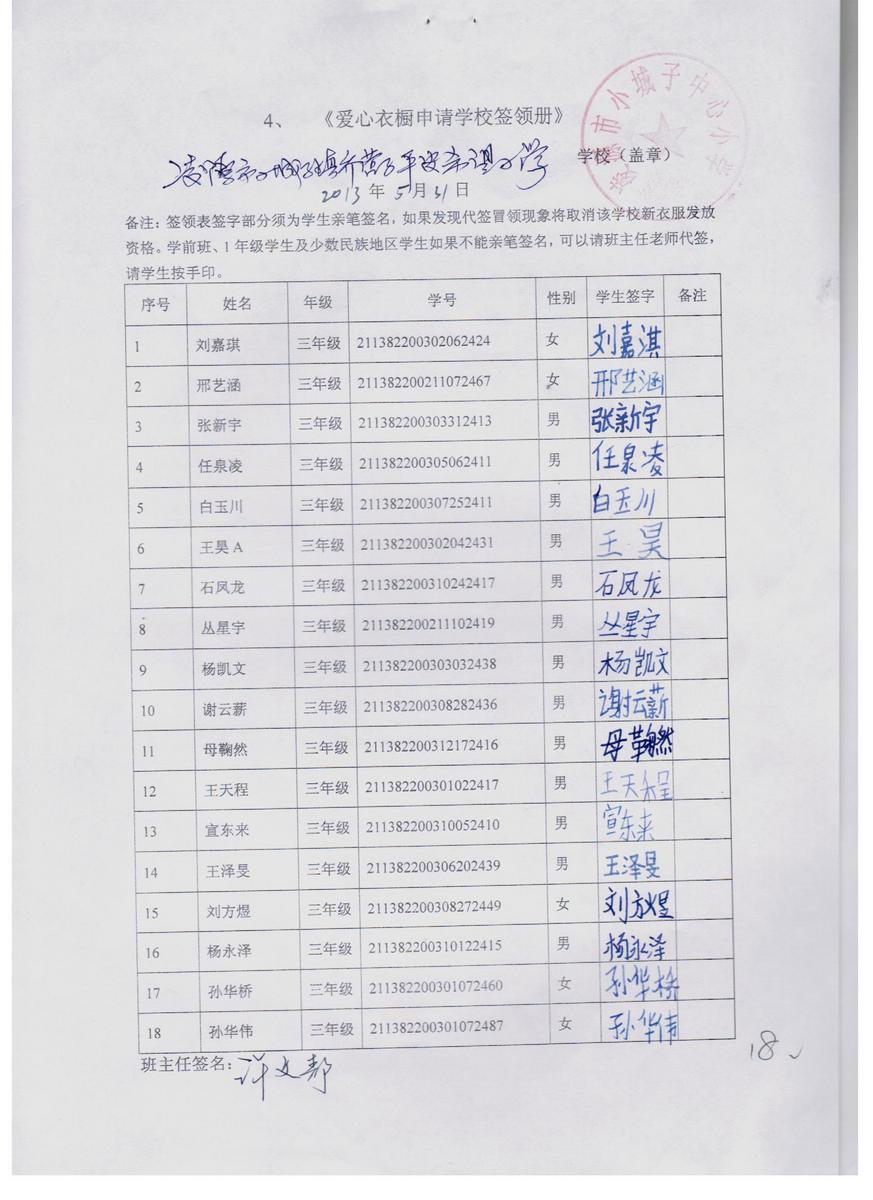 4、 《爱心衣橱申请学校签领册》
学校（盖章）
2013年5月31日
备注：签领表签字部分须为学生亲笔签名，如果发现代签冒领现象将取消该学校新衣服发放
资格。学前班、1年级学生及少数民族地区学生如果不能亲笔签名，可以请班主任老师代签，
请学生按手印。
序号 姓名 年级 学号 性别 学生签字 备注
1 刘嘉琪 三年级 211382200302062424 女 刘嘉淇
2 邢艺涵 三年级 211382200211072467 女 邢艺涵
3 张新宇 三年级 211382200303312413 男 张新宇
4 任泉凌 三年级 211382200305062411 男 任泉凌
5 白玉川 三年级 211382200307252411 男 白玉川
6 王昊A 三年级 211382200302042431 男 王昊
7 石凤龙 三年级 211382200310242417 男 石凤龙
8 丛星宇 三年级 211382200211102419 男 丛星宇
9 杨凯文 三年级 211382200303032438 男 杨凯文
10 谢云薪 三年级 211382200308282436 男 谢云薪
11 母鞠然 三年级 211382200312172416 男 母鞠然
12 王天程 三年级 211382200301022417 男 王天程
13 宣东来 三年级 211382200310052410 男 宣东来
14 王泽旻 三年级 211382200306202439 男 王泽旻
15 刘方煜 三年级 211382200308272449 女 刘方煜
16 杨永泽 三年级 211382200310122415 男 杨永泽
17 孙华桥 三年级 211382200301072460 女 孙华桥
18 孙华伟 三年级 211382200301072487 女 孙华伟
班主任签名：
18
市小城子中心小学